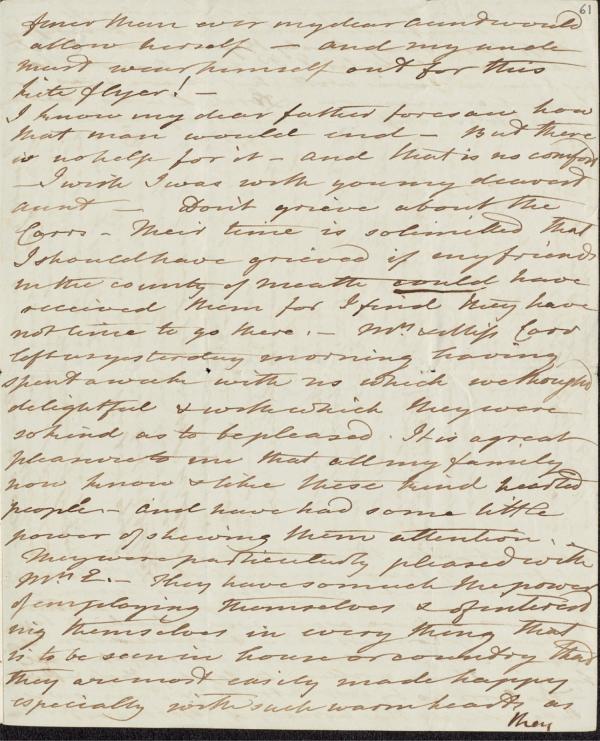 61
man ever my dear aunt would
allow herself — and my uncle
must wear himself out for this
kite flyer! —
I know my dear father foresaw how
that man would end — But there
is no help for it — and that is no comfort
— I wish I was with you my dearest
aunt — Don't grieve about the
Carrs — Their time is so limited that
I should have grieved if my friends
in the county of Meath could have
received them for I find they have
not time to go there. — Mrs. & Miss Carr
left us yesterday morning having
spent a week with us which we thought
delightful & with which they were
so kind as to be pleased. It is a great
pleasure to me that all my family
now know & like these kind hearted
people — and have had some little
power of shewing them attention.
They were particularly pleased with
Mrs. E. — They have so much the power
of employing themselves & of interest
ing themselves in every thing that
is to be seen in house or country that
they are most easily made happy
especially with such warm hearts as
they